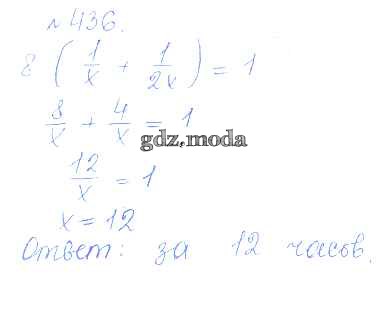 № 436.
8 ( 1/x + 1/2x ) = 1
8/x + 4/x = 1
gdz.moda
12/x = 1
x = 12
Ответ: за 12 часов.